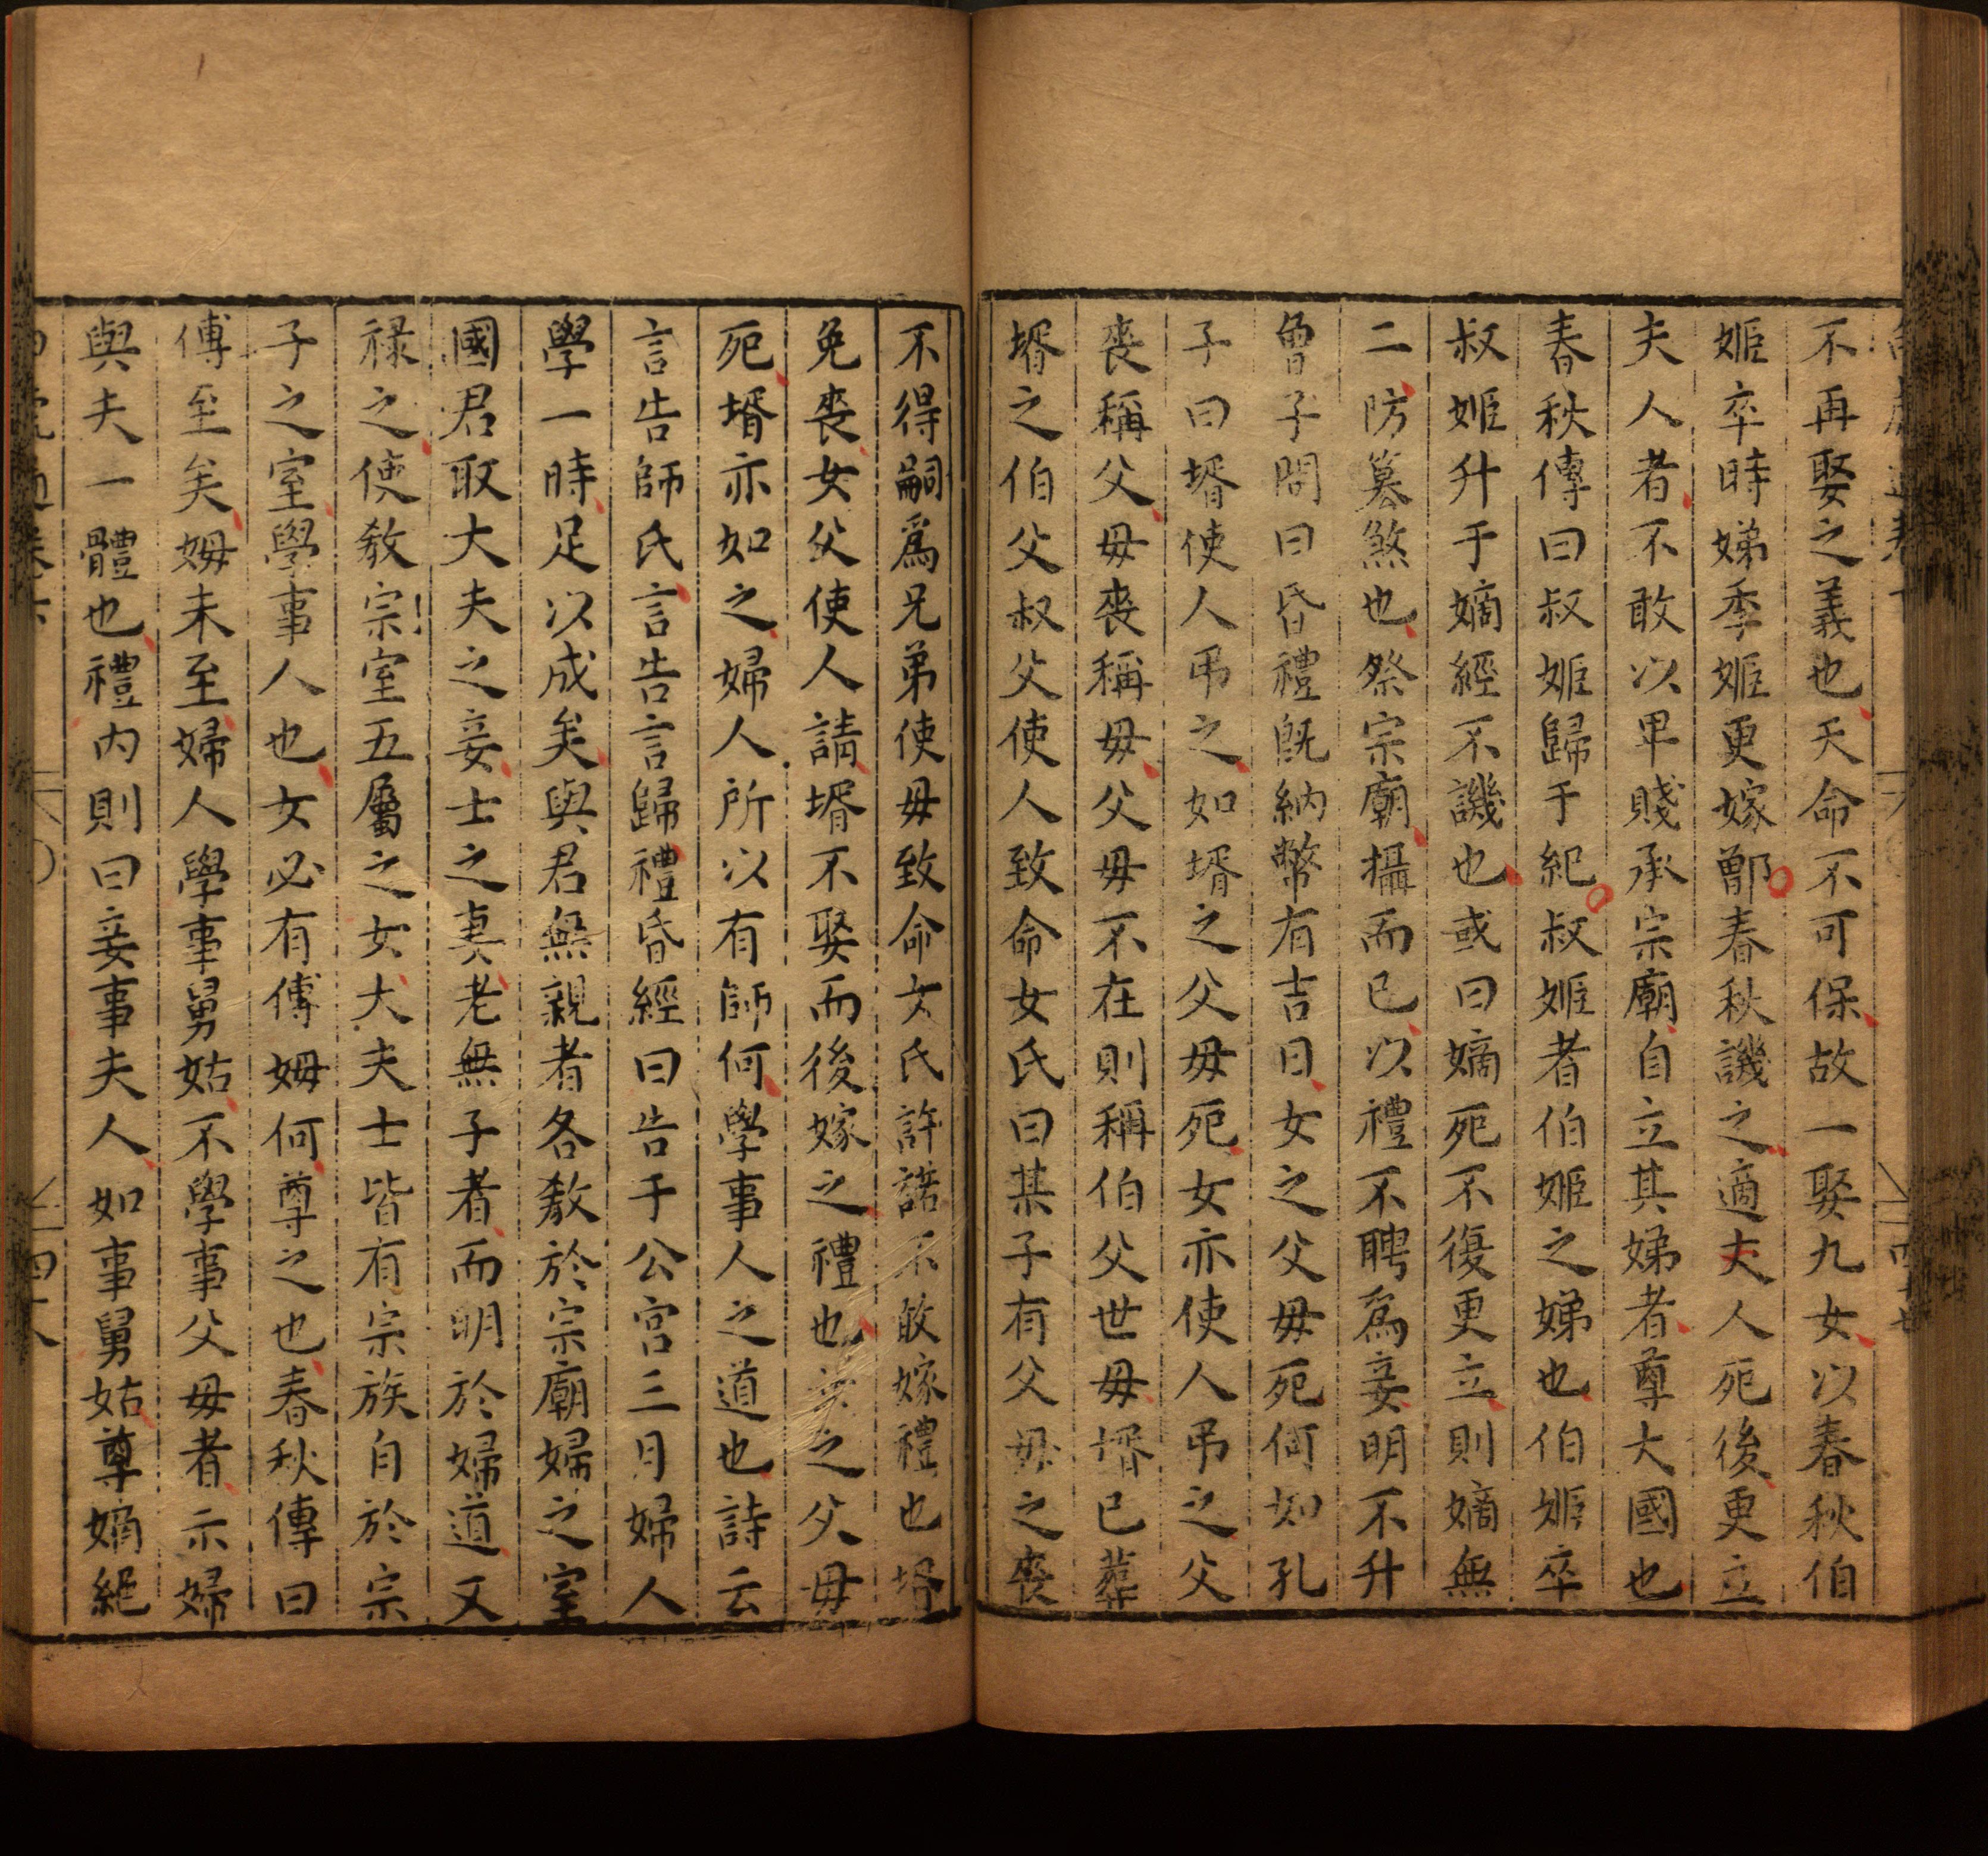 不再娶之義也天命不可保故一娶九女以春秋伯
姬卒時娣季姬更嫁鄫春秋譏之適夫人死後更立
夫人者不敢以卑賤承宗廟自立其娣者尊大國也
春秋傳曰叔姬歸于紀叔姬者伯姬之娣也伯姬卒
叔姬升于嫡經不譏也或曰嫡死不復更立則嫡無
二防篡煞也祭宗廟攝而已以禮不聘爲妾明不升
曾子問曰昏禮旣納幣有吉日女之父母死何如孔
子曰壻使人弔之如壻之父母死女亦使人弔之父
喪稱父母喪稱母父母不在則稱伯父世母壻已葬
壻之伯父叔父使人致命女氏曰某子有父母之喪
不得嗣爲兄弟使母致命女氏許諾不敢嫁禮也壻
免喪女父使人請壻不娶而後嫁之禮也女之父母
死壻亦如之婦人所以有師何學事人之道也詩云
言告師氏言告言歸禮昏經曰告于公宮三月婦人
學一時足以成矣與君無親者各教於宗廟婦之室
國君取大夫之妾士之妻老無子者而明於婦道又
祿之使教宗室五屬之女大夫士皆有宗族自於宗
子之室學事人也女必有傅姆何尊之也春秋傳曰
傅至矣姆未至婦人學事舅姑不學事父母者示婦
與夫一體也禮內則曰妾事夫人如事舅姑尊嫡絕